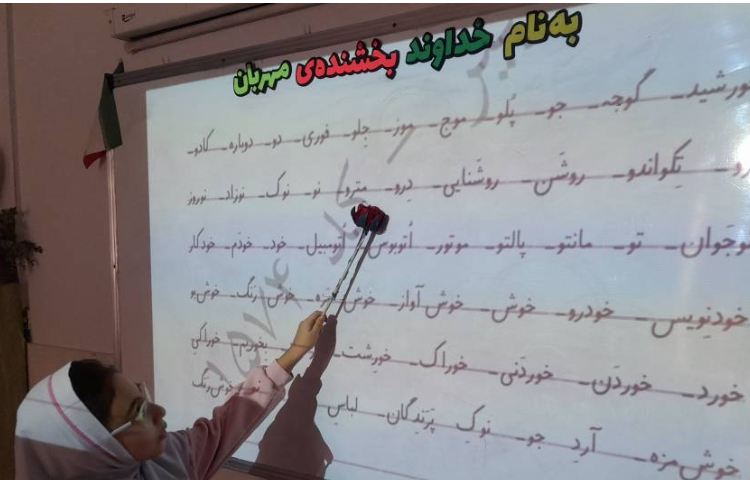 به‌نام خداوند بخشنده‌ی مهربان
خورشید - گوجه - جو - پُلو - موج - موز - جلو - فوری - دو - دوباره - کادو -
تِکواندو - روشَن - روشَنایی - دِرو - مترو - نو - نوک - نوزاد - نوروز
نوجَوان - تو - مانتو - پالتو - موتور - اُتوبوس - اُتومبیل - خود - خودَم - خودکار
خودنِویس - خودرو - خوش - خوش آواز - خوش مزه - خوش رنگ - خوش بو
خورد - خوردَن - خوردَنی - خوراک - خورشت - بخوریم - خوراکی
خوش مزه - آرد - جو - نوکِ پَرَندگان - لباس خوش رنگ